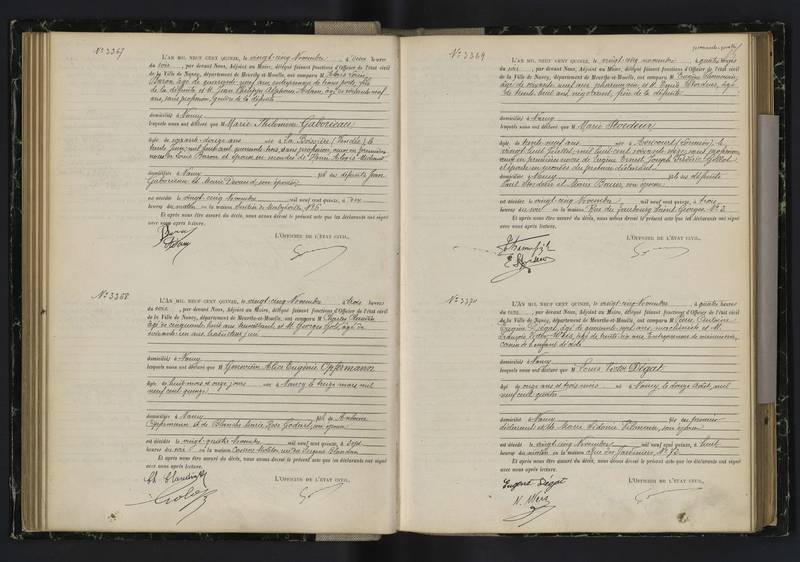 No 3367
L'AN MIL NEUF CENT QUINZE, le vingt-cinq Novembre, à deux heures
du soir, par devant Nous, Adjoint au Maire, délégué faisant fonctions d'Officier de l'état civil
de la Ville de Nancy, département de Meurthe-et-Moselle, ont comparu M Alexis Louis
Baron, âgé de quarante-neuf ans, entrepreneur de travaux, fils
de la défunte et M. Jean Philippe Alphonse Adam, âgé de
ans, sans profession, gendre de la défunte
domiciliés à Nancy
lesquels nous ont déclaré que Marie Philomène Gaborieau
âgée de soixante-douze ans née à La Boissière (Vendée) le
trente Juin mil huit cent quarante-trois, sans profession, veuve en premières
noces de Louis Baron et épouse en secondes de
domiciliée à Nancy fille des défunts Jean
Gaborieau et Marie Durand, son épouse
est décédée le vingt-cinq Novembre mil neuf cent quinze, à dix
heures du matin en la maison No 5
Et après nous être assuré du décès, nous avons dressé le présent acte que les déclarants ont signé
avec nous après lecture.
L'OFFICIER DE L'ÉTAT CIVIL,
No 3368
L'AN MIL NEUF CENT QUINZE, le vingt-cinq Novembre à trois heures
du soir, par devant Nous, Adjoint au Maire, délégué faisant fonctions d'Officier de l'état civil
de la Ville de Nancy, département de Meurthe-et-Moselle, ont comparu M Charles
âgé de cinquante-huit ans et M. Georges âgé de
soixante-un ans
domiciliés à Nancy
lesquels nous ont déclaré que Geneviève Alice Eugénie Opfermann
âgée de huit mois et onze jours née à Nancy le treize mars mil
neuf cent quinze
domiciliée à Nancy fille de Antoine
Opfermann et de Blanche Marie Rose Godard, son épouse
est décédée le vingt-quatre Novembre mil neuf cent quinze, à sept
heures du soir en la maison Caserne Molitor rue du Sergent Blandan
Et après nous être assuré du décès, nous avons dressé le présent acte que les déclarants ont signé
avec nous après lecture.
L'OFFICIER DE L'ÉTAT CIVIL,
No 3369
L'AN MIL NEUF CENT QUINZE, le vingt-cinq novembre, à quatre heures
du soir, par devant Nous, Adjoint au Maire, délégué faisant fonctions d'Officier de l'état civil
de la Ville de Nancy, département de Meurthe-et-Moselle, ont comparu M
âgé de soixante-neuf ans, pharmacien, et M. Emile âgé
de trente-huit ans, négociant, frère de la défunte
domiciliés à Nancy
lesquels nous ont déclaré que Marie
âgée de trente-neuf ans née à Avricourt (Lorraine) le
vingt-huit Juillet mil huit cent soixante-seize, sans profession
veuve en premières noces de Eugène Ernest Joseph Frédéric
et épouse en secondes du premier déclarant
domiciliée à Nancy fille des défunts
Paul et Marie son épouse
est décédée le vingt-cinq Novembre mil neuf cent quinze, à trois
heures du soir en la maison Rue du faubourg Saint-Georges No 2
Et après nous être assuré du décès, nous avons dressé le présent acte que les déclarants ont signé
avec nous après lecture.
L'OFFICIER DE L'ÉTAT CIVIL,
No 3370
L'AN MIL NEUF CENT QUINZE, le vingt-cinq Novembre, à quatre heures
du soir, par devant Nous, Adjoint au Maire, délégué faisant fonctions d'Officier de l'état civil
de la Ville de Nancy, département de Meurthe-et-Moselle, ont comparu M Pierre Antoine
Eugène Dégat, âgé de quarante-sept ans, machiniste et M.
François Victor âgé de trente-six ans, Entrepreneur de menuiserie,
cousin de l'enfant décédé
domiciliés à Nancy
lesquels nous ont déclaré que Louis Victor Dégat
âgé de onze ans et trois mois né à Nancy le douze Août mil
neuf cent quatre
domicilié à Nancy fils du premier
déclarant et de Marie Sidonie son épouse
est décédé le vingt-cinq Novembre mil neuf cent quinze, à huit
heures du matin en la maison rue des Jardiniers, No
Et après nous être assuré du décès, nous avons dressé le présent acte que les déclarants ont signé
avec nous après lecture.
Eugène Dégat
L'OFFICIER DE L'ÉTAT CIVIL,